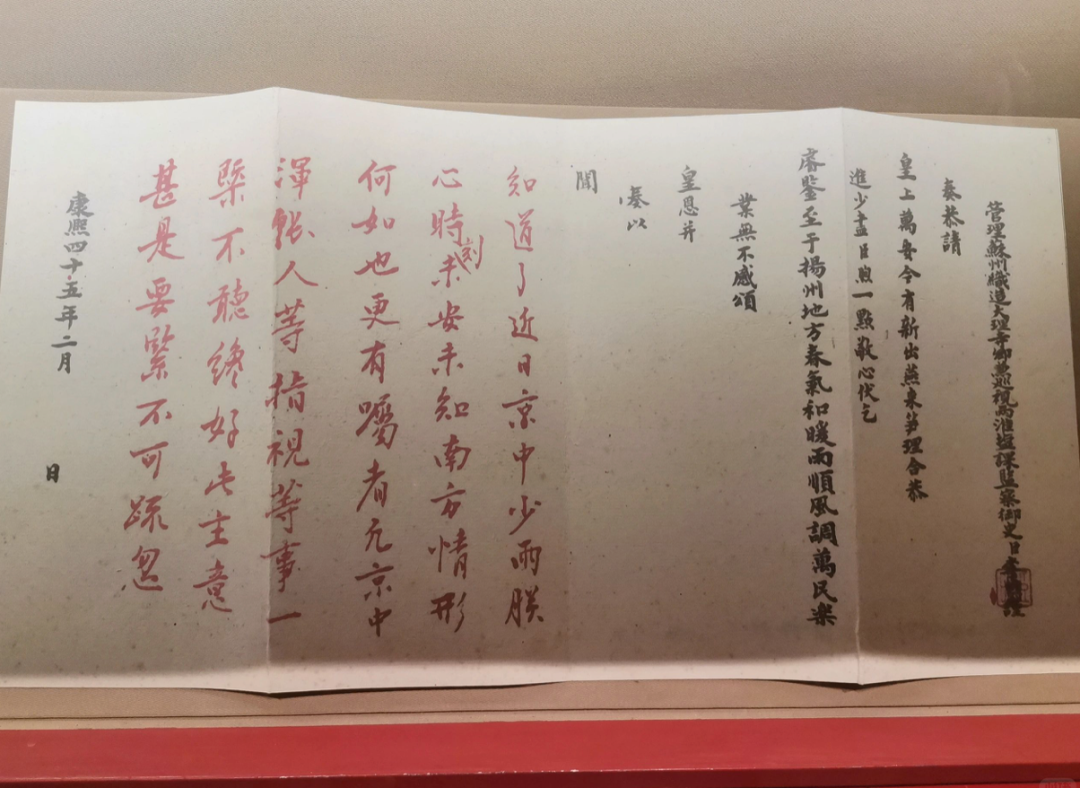 管理蘇州織造大理寺卿兼巡視兩淮鹽課監察御史臣李煦謹
奏恭請
皇上萬安今有新出燕來笋理合恭
進少
臣煦一點敬心伏乞
睿鑒至于揚州地方春氣和暖雨順風調萬民樂
業無不感頌
皇恩并
奏以
聞
知道了近日京中少雨朕
心時刻未安未知南方情形
何如也更有囑者凡京中
渾賬人等指視等事一
槩不聽纔好此主意
甚是要緊不可疏忽
康熙四十五年二月 日